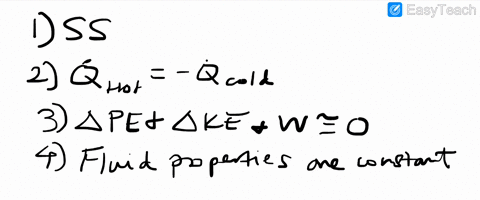 EasyTeach
1) SS
2) Q̇ Hot = - Q̇ cold
3) △PE + △KE + W ≅ 0
4) Fluid properties are constant